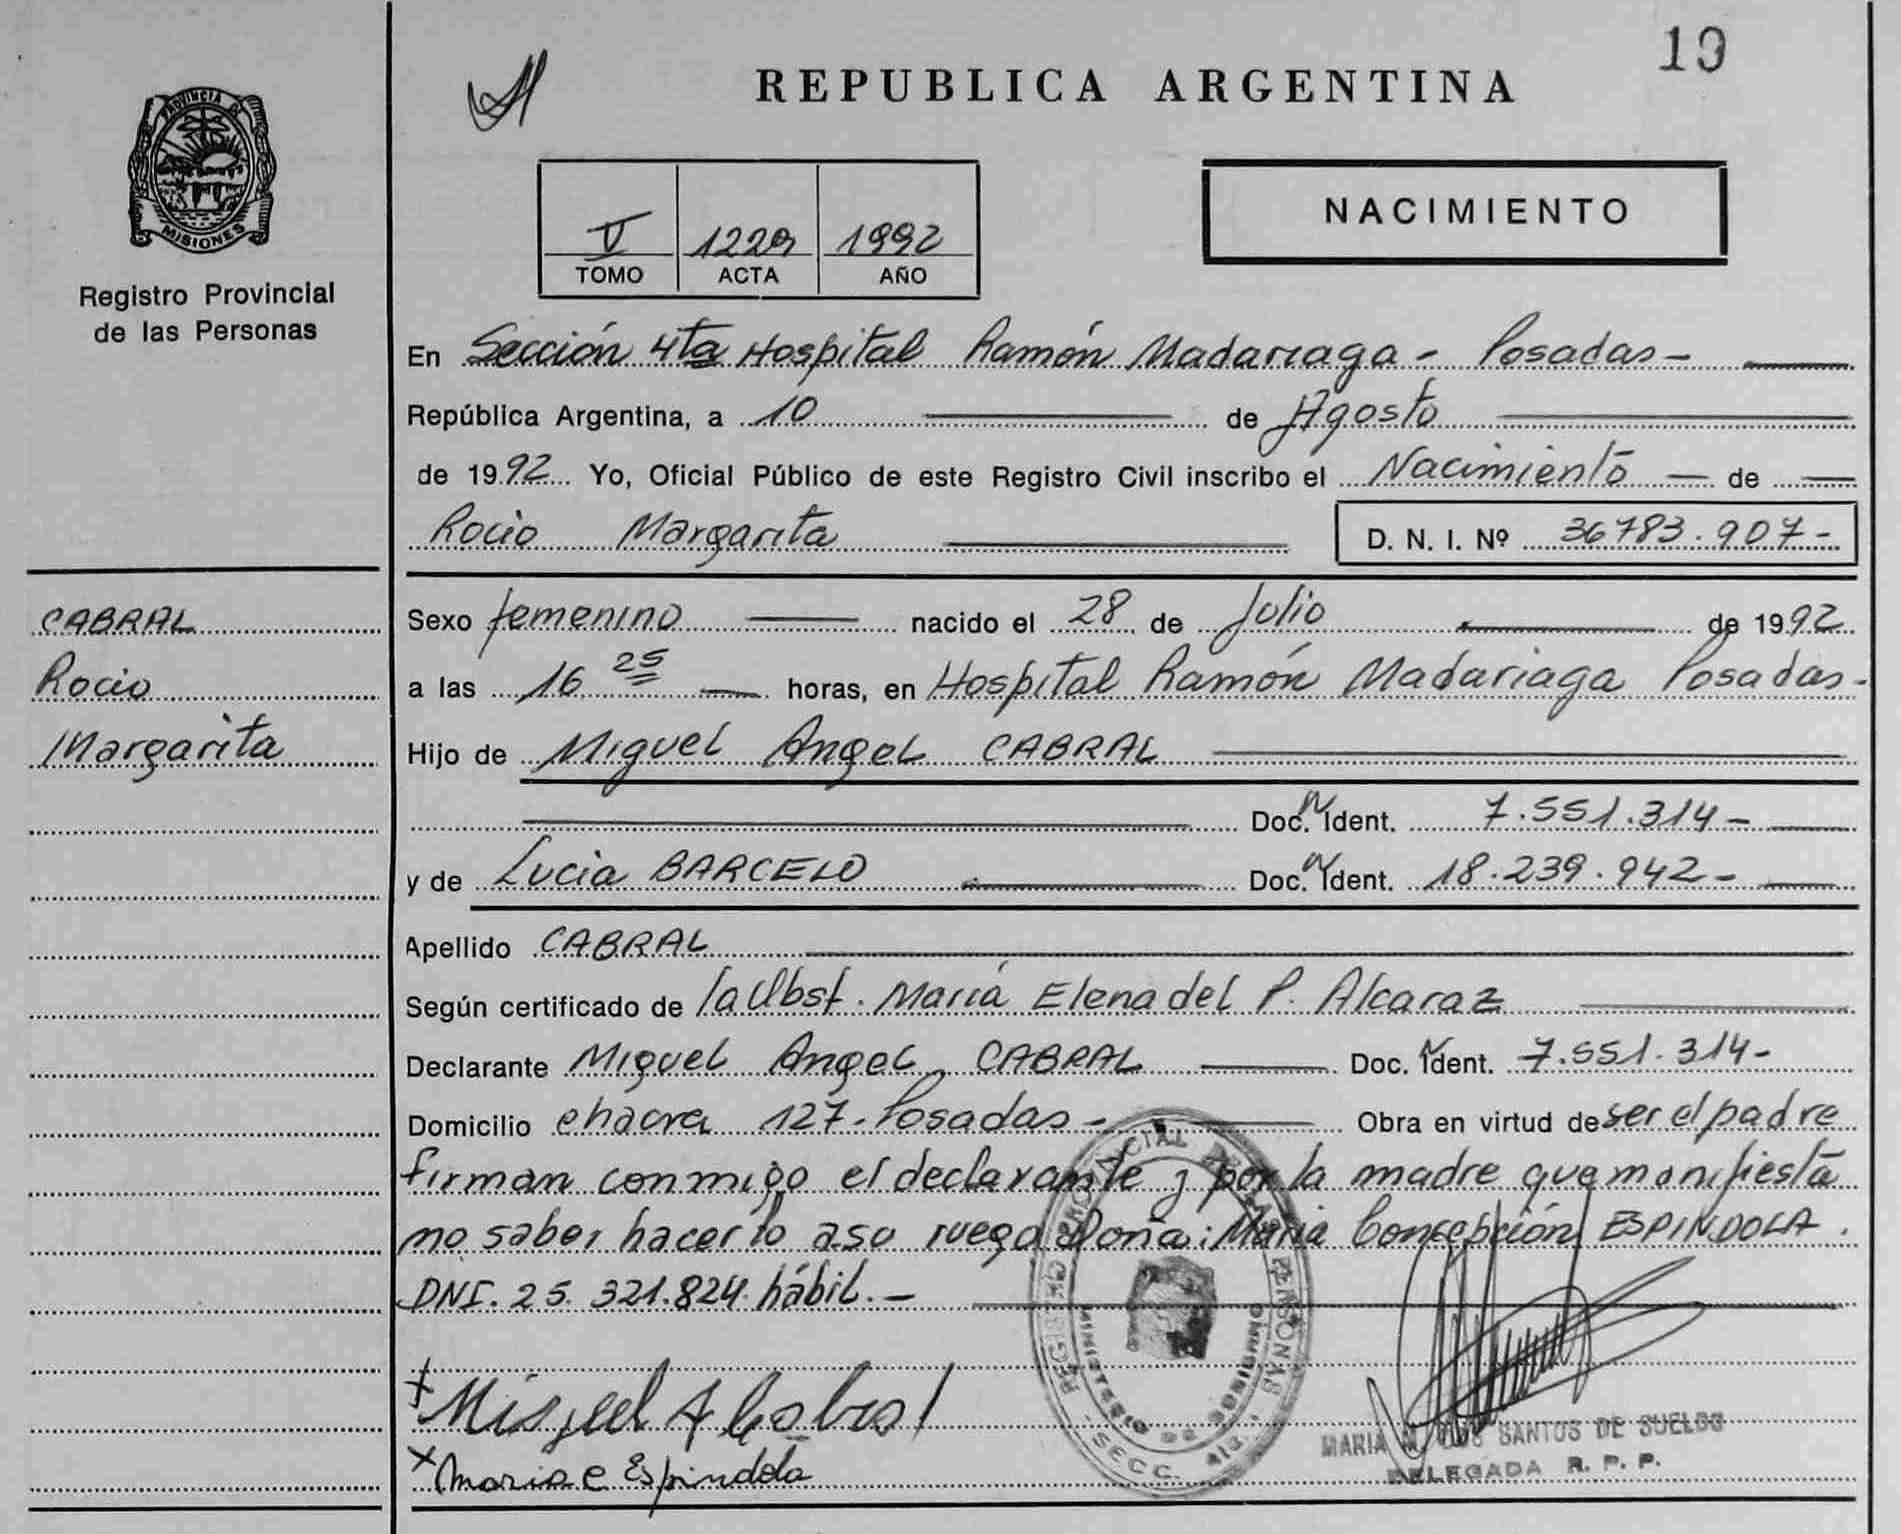 19
REPUBLICA ARGENTINA
PROVINCIA DE
MISIONES
Registro Provincial
de las Personas
NACIMIENTO
V 1229 1992
TOMO ACTA AÑO
En Sección 4ta Hospital Ramón Madariaga - Posadas -
República Argentina, a 10 de Agosto
de 1992 Yo, Oficial Público de este Registro Civil inscribo el Nacimiento de
Rocio Margarita D. N. I. Nº 36783.907-
CABRAL
Rocio
Margarita
Sexo femenino nacido el 28 de Julio de 1992
a las 16 25 horas, en Hospital Ramón Madariaga Posadas-
Hijo de Miguel Angel CABRAL
Doc. N Ident. 7.551.314-
y de Lucia BARCELO Doc. N Ident. 18.239.942-
Apellido CABRAL
Según certificado de la Obst. María Elena del P. Alcaraz
Declarante Miguel Angel CABRAL Doc. N Ident. 7.551.314-
Domicilio chacra 127-Posadas- Obra en virtud de ser el padre
firman conmigo el declarante y por la madre que manifiesta
no saber hacerlo a su ruego Doña: Maria Concepción ESPINDOLA.
DNI. 25.321.824. hábil.-
Miguel A Cabral
Maria C Espindola
REGISTRO PROVINCIAL DE LAS PERSONAS
MINISTERIO DE GOBIERNO
SECC.
MARIA SANTOS DE SUELDO
DELEGADA R. P. P.